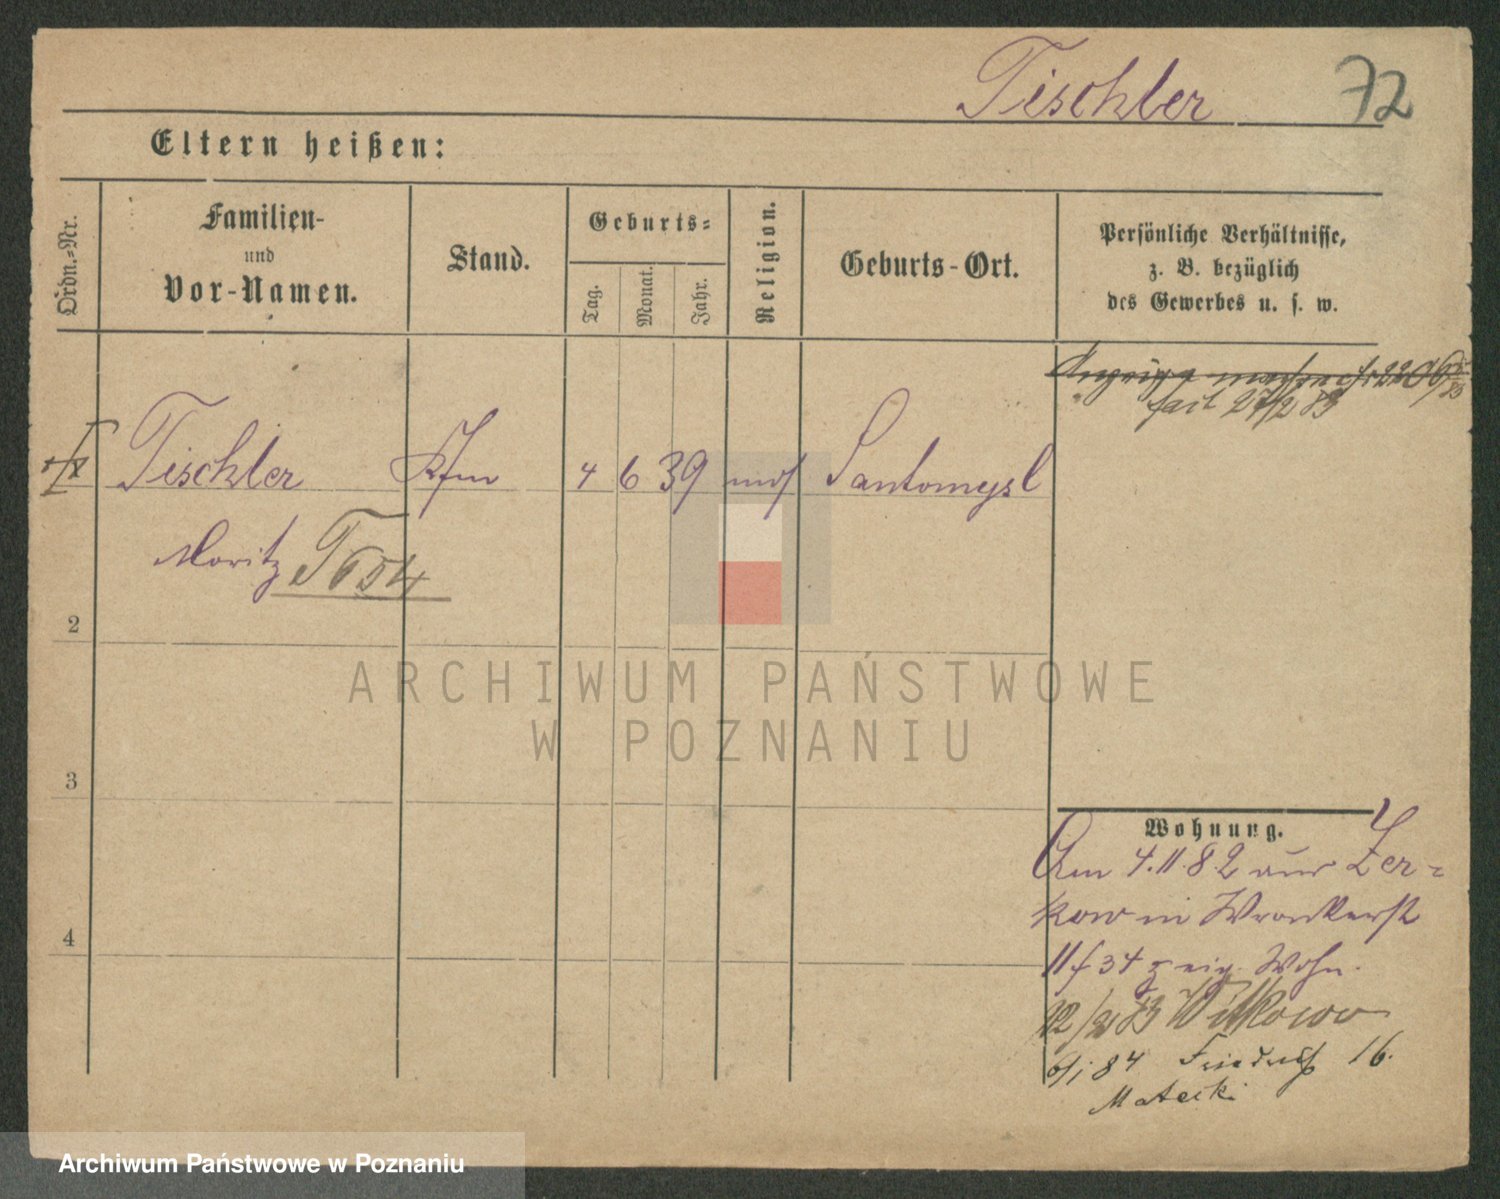 Tischler 72
Eltern heißen:
Ordn.-Nr.
Familien-
und
Vor-Namen.
Stand.
Geburts-
Tag.
Monat.
Jahr.
Religion.
Geburts-Ort.
Persönliche Verhältnisse,
z. B. bezüglich
des Gewerbes u. s. w.
Anzeige
27/2 83
Tischler Kfm 4 6 39 mos Santomysl
Moritz T654
2
3
4
Wohnung.
Am 4.11.82 aus Zer-
kow in Wronkerstr
11 f 34 z eig. Wohn.
12/2 83 Witkowo
6/1 84 Friedrich 16.
Matecki
ARCHIWUM PAŃSTWOWE
W POZNANIU
Archiwum Państwowe w Poznaniu